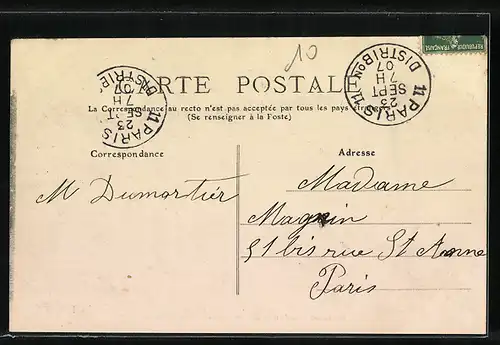 10
REPUBLIQUE FRANÇAISE
11 PARIS 11
DISTRIBON
7 H
23
SEPT
07
11 PARIS
DISTRIB
7 H
23
SEPT
07
CARTE POSTALE
La Correspondance au recto n'est pas acceptée par tous les pays étrangers
(Se renseigner à la Poste)
Correspondance
Adresse
M Dumortier
Madame
Magnin
51 bis rue St Anne
Paris